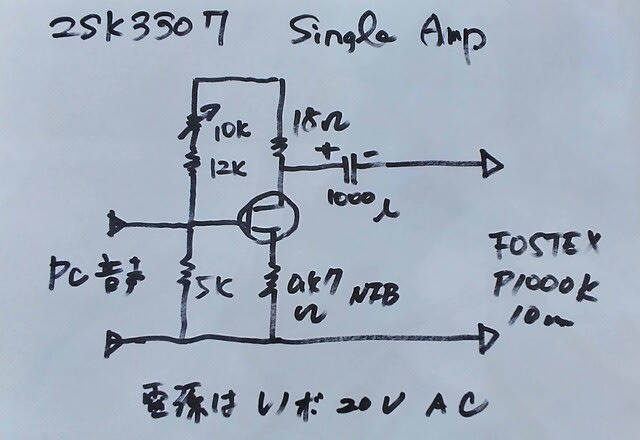 2SK3507 Single Amp
10K
18Ω
12K
+ -
1000μ
PC 音声
5K
0.47
Ω
NFB
FOSTEX
P1000K
10cm
電源は レノボ 20V AC